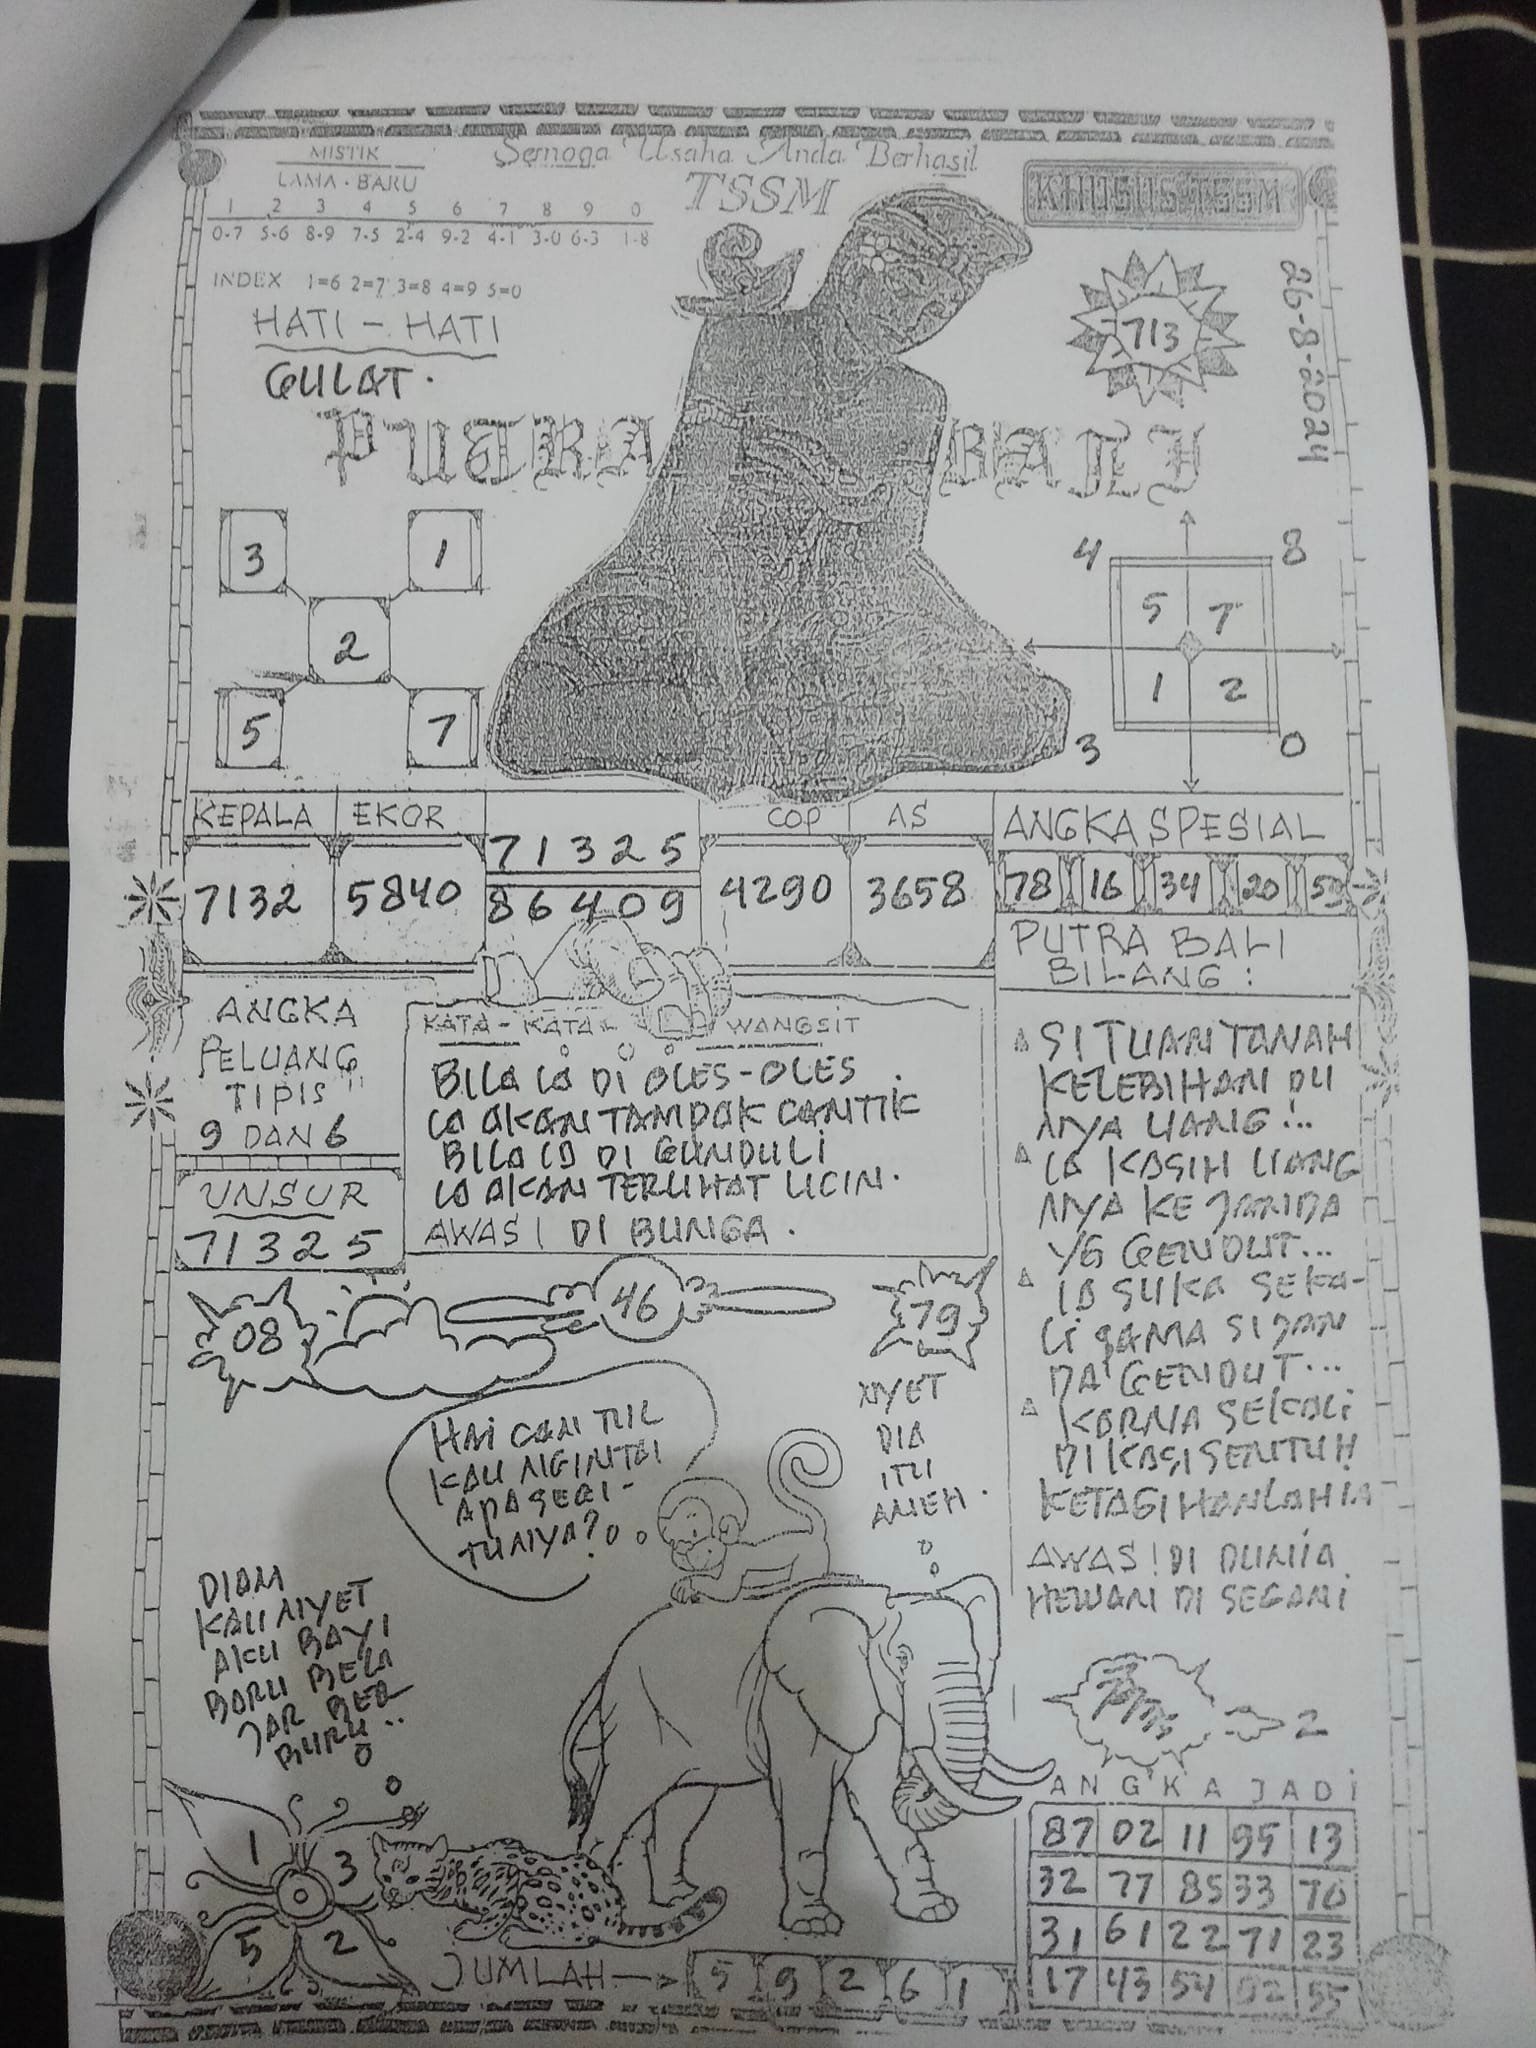 MISTIK
LAMA - BARU
1 2 3 4 5 6 7 8 9 0
0-7 5-6 8-9 7-5 2-4 9-2 4-1 3-0 6-3 1-8
INDEX 1=6 2=7 3=8 4=9 5=0
Semoga Usaha Anda Berhasil
TSSM
KHUSUS TSSM
26-8-2024
HATI - HATI
GULAT.
713
PUTRA BALI
3 1
2
5 7
4 8
5 7
1 2
3 0
KEPALA EKOR
7132 5840
71325
86409
COP AS
4290 3658
ANGKA SPESIAL
78 16 34 20 59
ANGKA
PELUANG
TIPIS
9 DAN 6
UNSUR
71325
KATA - KATA WANGSIT
BILA IA DI OLES-OLES.
IA AKAN TAMPAK CANTIK
BILA IA DI GUNDULI
IA AKAN TERLIHAT LICIN.
AWAS! DI BUNGA.
PUTRA BALI
BILANG:
SI TUAN TANAH
KELEBIHAN DU
NYA UANG!..
IA KASIH UANG
NYA KE JANDA
YG GENDUT...
IA SUKA SEKA-
LI SAMA SI JAN
DA GENDUT...
KARNA SEKALI
DI KASI SENTUH
KETAGIHANLAH IA
AWAS! DI DUNIA
HEWAN DI SEGANI
08
46
79
HAI CANTIK
KAU NGINTAI
APA SERI-
TUNYA?
NYET
DIA
ITU
ANEH.
DIAM
KAU NYET
AKU BAYI
BARU BELA
JAR BER
BURU..
1 3
5 2
JUMLAH 5 9 2 6 1
2
ANGKA JADI
87 02 11 95 13
32 77 85 33 70
31 61 22 71 23
17 43 54 55